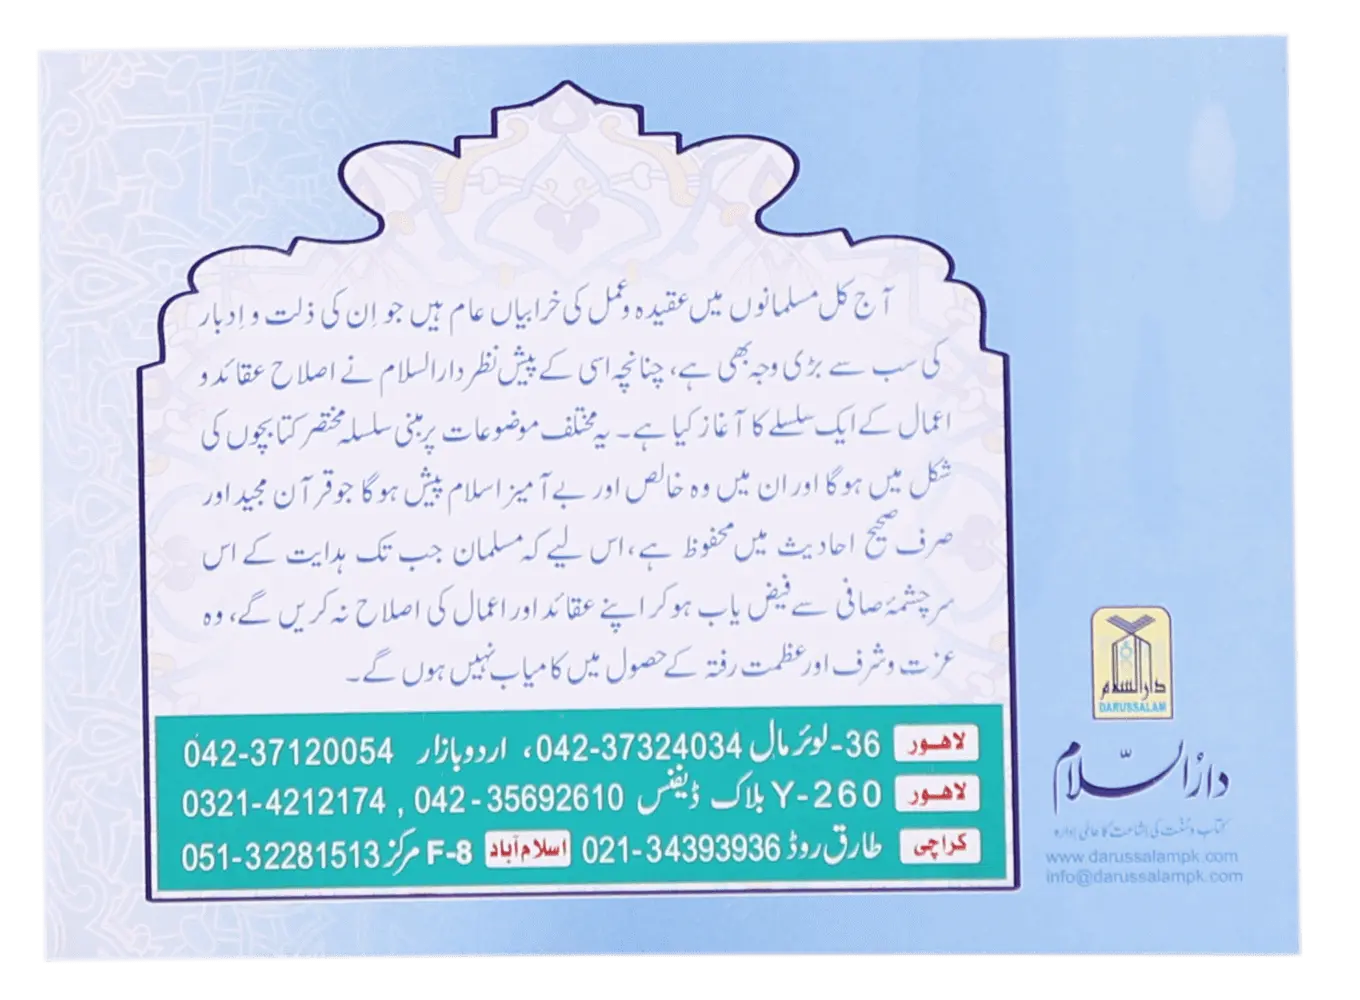 آج کل مسلمانوں میں عقیدہ و عمل کی خرابیاں عام ہیں جو اِن کی ذلت و اِدبار
کی سب سے بڑی وجہ بھی ہے، چنانچہ اسی کے پیش نظر دارالسلام نے اصلاح عقائد و
اعمال کے ایک سلسلے کا آغاز کیا ہے۔ یہ مختلف موضوعات پر مبنی سلسلہ مختصر کتابچوں کی
شکل میں ہوگا اور ان میں وہ خالص اور بے آمیز اسلام پیش ہوگا جو قرآن مجید اور
صرف صحیح احادیث میں محفوظ ہے، اس لیے کہ مسلمان جب تک ہدایت کے اس
سرچشمۂ صافی سے فیض یاب ہو کر اپنے عقائد اور اعمال کی اصلاح نہ کریں گے، وہ
عزت و شرف اور عظمت رفتہ کے حصول میں کامیاب نہیں ہوں گے۔
لاھور 36-لوئر مال 042-37324034، اردو بازار 042-37120054
لاھور Y-260 بلاک ڈیفنس 042-35692610 , 0321-4212174
کراچی طارق روڈ 021-34393936 اسلام آباد F-8 مرکز 051-32281513
دارالسلام
DARUSSALAM
دارُالسّلام
کتاب و سنت کی اشاعت کا عالمی ادارہ
www.darussalampk.com
info@darussalampk.com